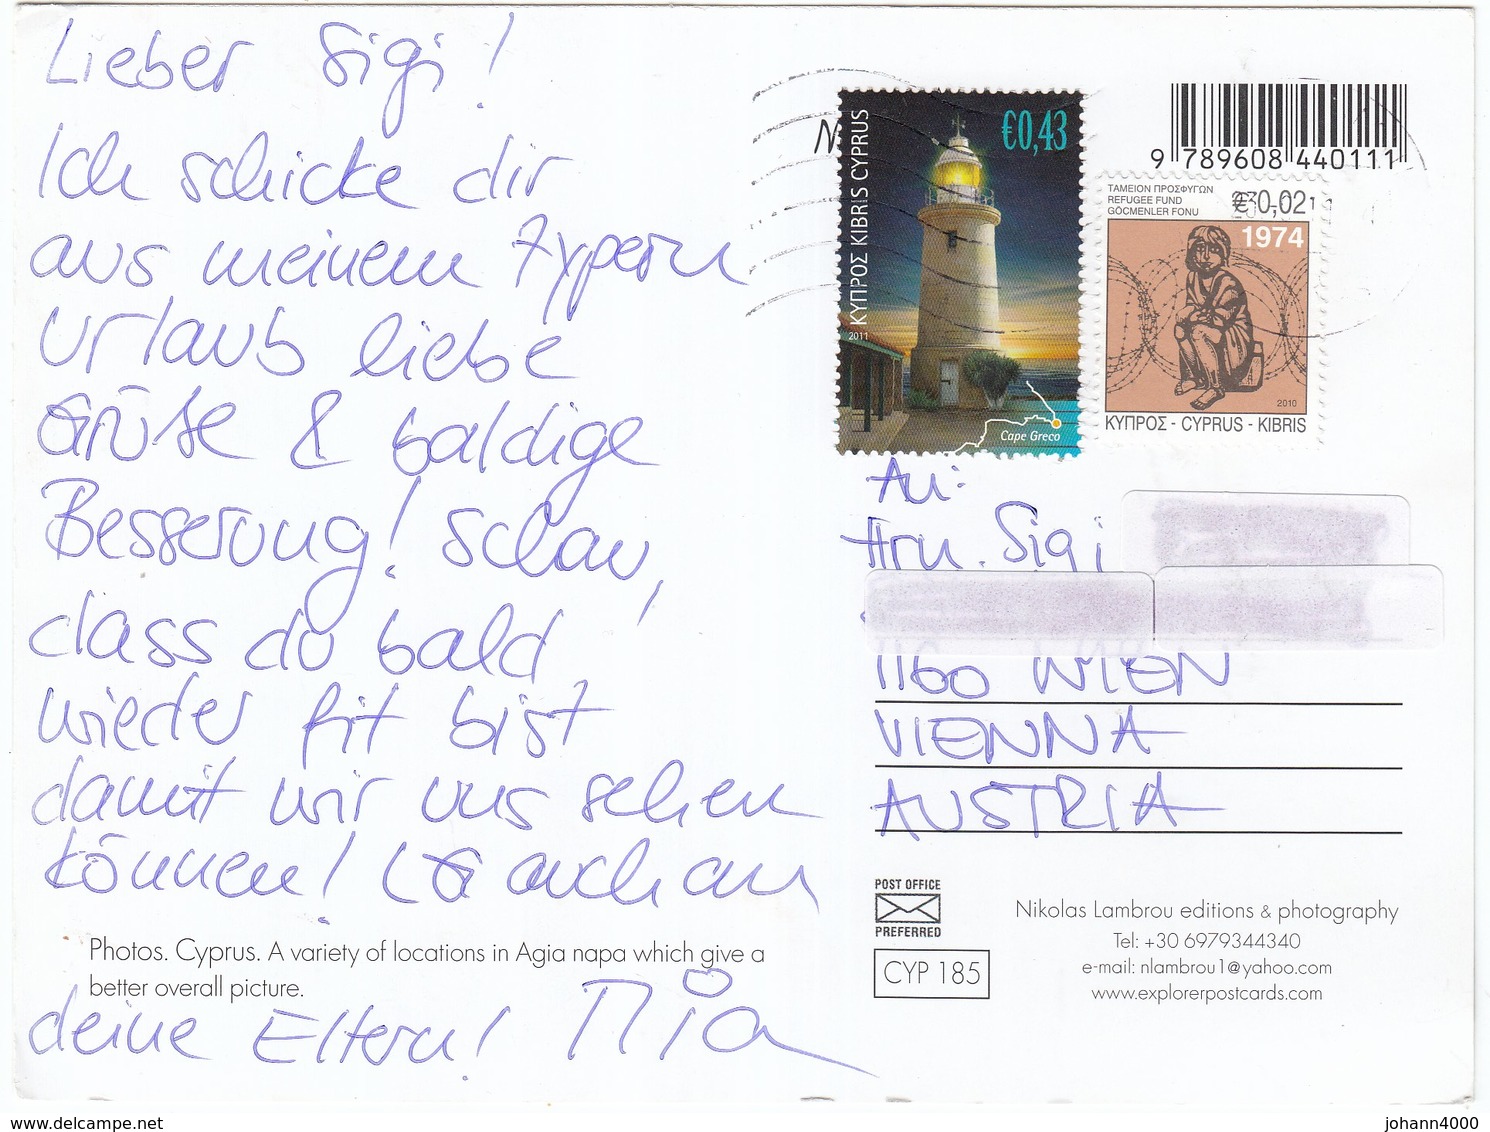 Lieber Sigi!
Ich schicke dir
aus meinem Zypern
urlaub liebe
Grüße & baldige
Besserung! Schau,
dass du bald
wieder fit bist
damit wir uns sehen
können! LG auch an
deine Eltern! Mia
Photos. Cyprus. A variety of locations in Agia napa which give a
better overall picture.
€0,43
ΚΥΠΡΟΣ KIBRIS CYPRUS
2011
Cape Greco
9 789608 440111
ΤΑΜΕΙΟΝ ΠΡΟΣΦΥΓΩΝ
REFUGEE FUND
GÖCMENLER FONU
€0,02
1974
2010
ΚΥΠΡΟΣ - CYPRUS - KIBRIS
An:
Hrn. Sigi
1160 WIEN
VIENNA
AUSTRIA
POST OFFICE
PREFERRED
CYP 185
Nikolas Lambrou editions & photography
Tel: +30 6979344340
e-mail: nlambrou1@yahoo.com
www.explorerpostcards.com
www.delcampe.net
johann4000